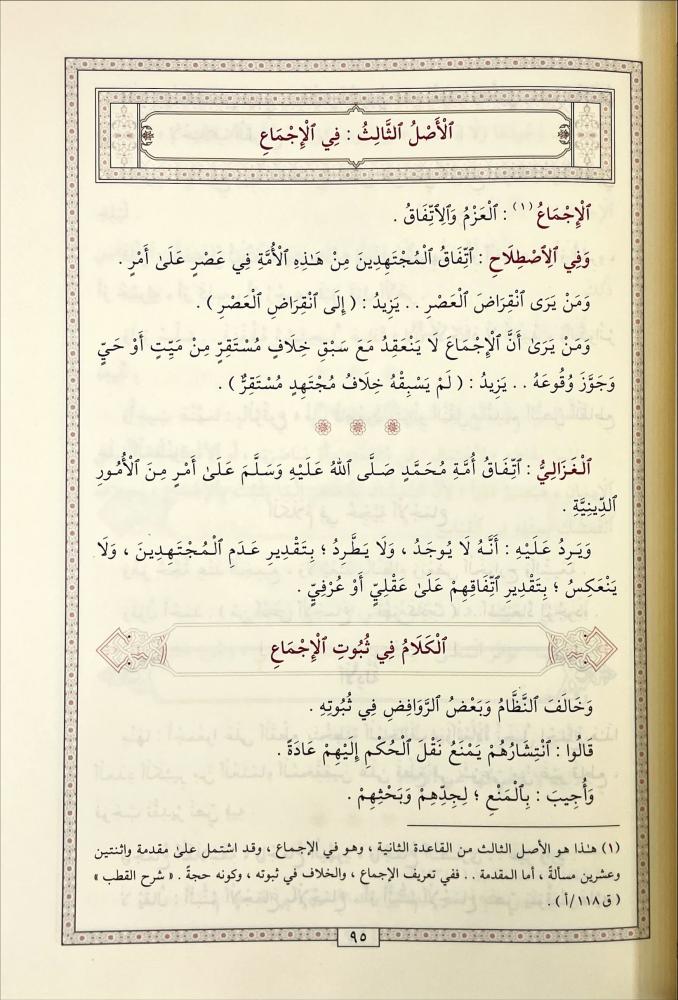 ٱلْأَصْلُ ٱلثَّالِثُ : فِي ٱلْإِجْمَاعِ
ٱلْإِجْمَاعُ (١) : ٱلْعَزْمُ وَٱلِٱتِّفَاقُ .
وَفِي ٱلِٱصْطِلَاحِ : ٱتِّفَاقُ ٱلْمُجْتَهِدِينَ مِنْ هَـٰذِهِ ٱلْأُمَّةِ فِي عَصْرٍ عَلَىٰ أَمْرٍ .
وَمَنْ يَرَى ٱنْقِرَاضَ ٱلْعَصْرِ . . يَزِيدُ : ( إِلَى ٱنْقِرَاضِ ٱلْعَصْرِ ) .
وَمَنْ يَرَىٰ أَنَّ ٱلْإِجْمَاعَ لَا يَنْعَقِدُ مَعَ سَبْقِ خِلَافٍ مُسْتَقِرٍّ مِنْ مَيِّتٍ أَوْ حَيٍّ
وَجَوَّزَ وُقُوعَهُ . . يَزِيدُ : ( لَمْ يَسْبِقْهُ خِلَافُ مُجْتَهِدٍ مُسْتَقِرٌّ ) .
ٱلْغَزَالِيُّ : ٱتِّفَاقُ أُمَّةِ مُحَمَّدٍ صَلَّى ٱللهُ عَلَيْهِ وَسَلَّمَ عَلَىٰ أَمْرٍ مِنَ ٱلْأُمُورِ
ٱلدِّينِيَّةِ .
وَيَرِدُ عَلَيْهِ : أَنَّهُ لَا يُوجَدُ ، وَلَا يَطَّرِدُ ؛ بِتَقْدِيرِ عَدَمِ ٱلْمُجْتَهِدِينَ ، وَلَا
يَنْعَكِسُ ؛ بِتَقْدِيرِ ٱتِّفَاقِهِمْ عَلَىٰ عَقْلِيٍّ أَوْ عُرْفِيٍّ .
ٱلْكَلَامُ فِي ثُبُوتِ ٱلْإِجْمَاعِ
وَخَالَفَ ٱلنَّظَّامُ وَبَعْضُ ٱلرَّوَافِضِ فِي ثُبُوتِهِ .
قَالُوا : ٱنْتِشَارُهُمْ يَمْنَعُ نَقْلَ ٱلْحُكْمِ إِلَيْهِمْ عَادَةً .
وَأُجِيبَ : بِٱلْمَنْعِ ؛ لِجِدِّهِمْ وَبَحْثِهِمْ .
(١) هـٰذا هو الأصل الثالث من القاعدة الثانية ، وهو في الإجماع ، وقد اشتمل علىٰ مقدمة واثنتين
وعشرين مسألةً ، أما المقدمة . . ففي تعريف الإجماع ، والخلاف في ثبوته ، وكونه حجةً . « شرح القطب »
( ق١١٨/أ ) .
٩٥